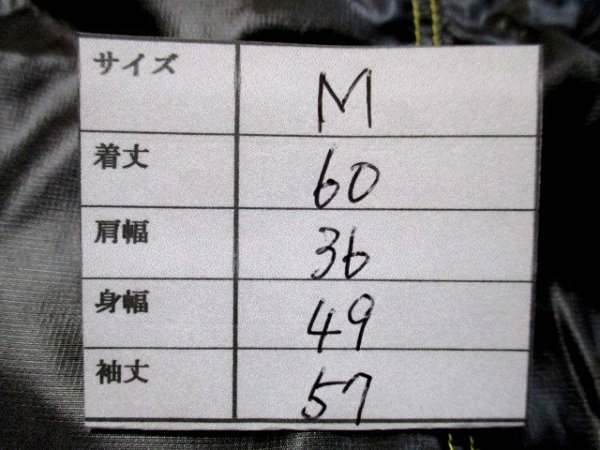 サイズ M
着丈 60
肩幅 36
身幅 49
袖丈 57